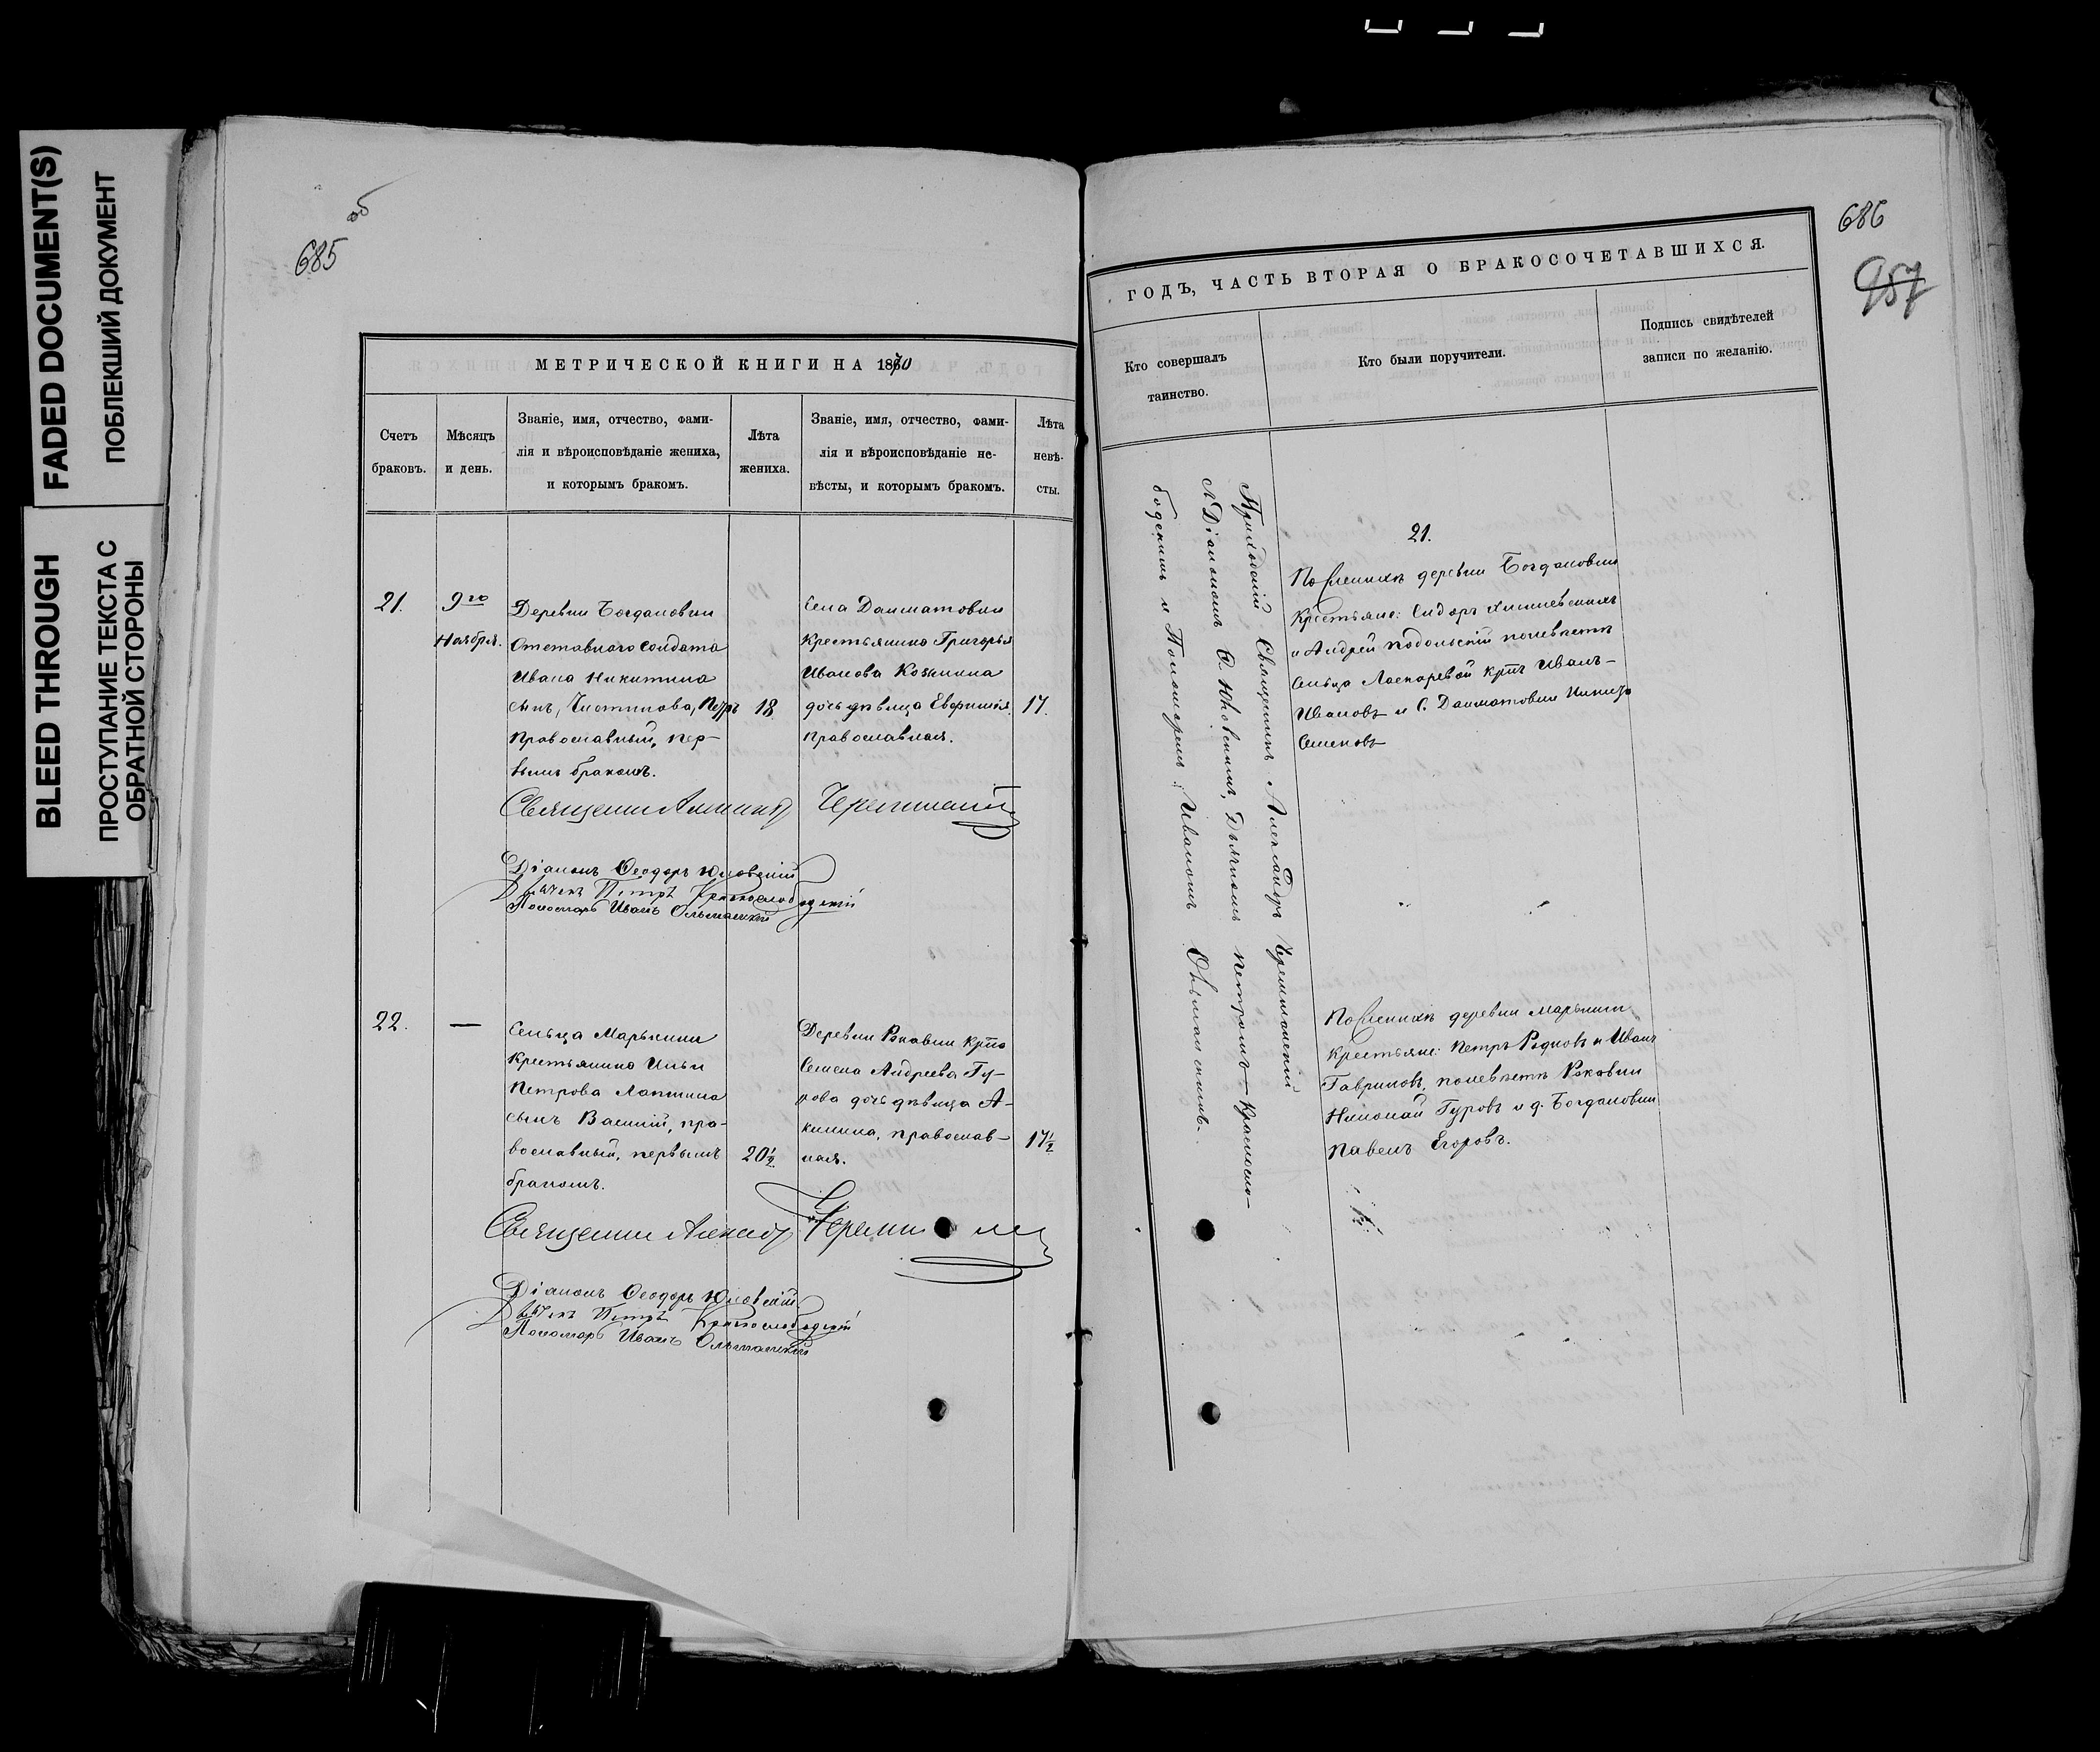 FADED DOCUMENT(S)
ПОБЛЕКШИЙ ДОКУМЕНТ
BLEED THROUGH
ПРОСТУПАНИЕ ТЕКСТА С
ОБРАТНОЙ СТОРОНЫ
об
685
МЕТРИЧЕСКОЙ КНИГИ НА 1870
Счетъ
браковъ.
Мѣсяцъ
и день.
Званіе, имя, отчество, фами-
лія и вѣроисповѣданіе жениха,
и которымъ бракомъ.
Лѣта
жениха.
Званіе, имя, отчество, фами-
лія и вѣроисповѣданіе не-
вѣсты, и которымъ бракомъ.
Лѣта
невѣ-
сты.
21.
9го
Ноября.
Деревни Богдановки
Отставнаго Солдата
Ивана Никитина
сынъ, Петръ
Православный, пер-
вымъ бракомъ.
18.
Села Далматовки
Крестьянина Григорья
Иванова
дочь дѣвица Евфимія,
православная.
17.
Священникъ
Діаконъ Ѳеодоръ Юновскій
Дьячекъ Петръ Краснослободскій
Пономарь Иванъ Ольшанскій
22.
—
Сельца Марьинки
Крестьянина Ильи
Петрова Лаптина
сынъ Василій, пра-
вославный, первымъ
бракомъ.
20½
Деревни
Семена Андреева Гу-
рова дочь дѣвица А-
килина, православ-
ная.
17½
Священникъ
Діаконъ Ѳеодоръ Юновскій
Дьячекъ Петръ Краснослободскій
Пономарь Иванъ Ольшанскій
686
957
ГОДЪ, ЧАСТЬ ВТОРАЯ О БРАКОСОЧЕТАВШИХСЯ.
Кто совершалъ
таинство.
Кто были поручители.
Подпись свидѣтелей
записи по желанію.
Приходскій Священникъ Александръ
съ Діакономъ Ѳ. Юновскимъ, Дьячкомъ Петромъ Красносло-
бодскимъ и Пономаремъ Иваномъ Ольшанскимъ.
21.
По Женихѣ деревни Богдановки
Крестьяне: Сидоръ
и Андрей Подольскій по невѣстѣ
Сельца Иванъ
Ивановъ и С. Далматовки
Семеновъ
По Женихѣ деревни Марьинки
Крестьяне: Петръ и Иванъ
Гавриловъ, по невѣстѣ
Николай Гуровъ и д. Богдановки
Павелъ Егоровъ.